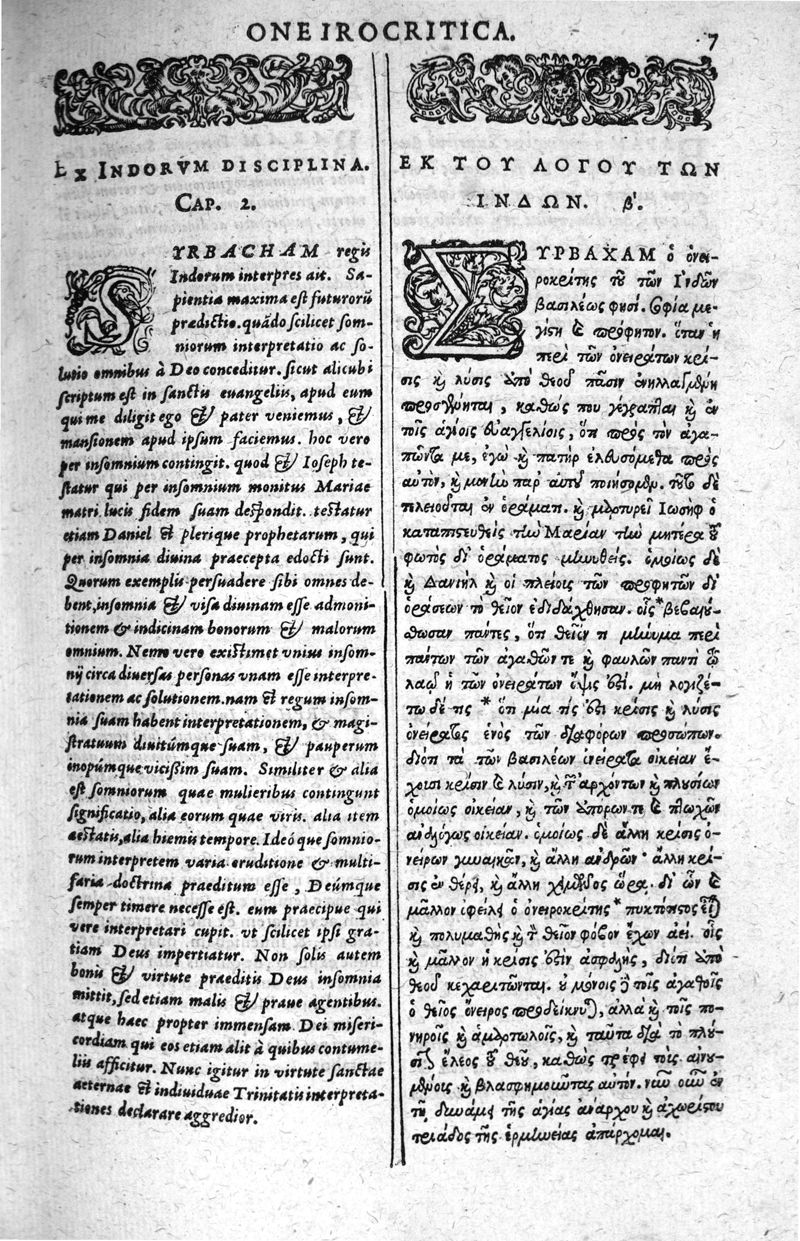 ONEIROCRITICA. 7
Ex INDORVM DISCIPLINA.
CAP. 2.
SYRBACHAM regis
Indorum interpres ait. Sa-
pientia maxima est futurorũ
prædictio. quãdo scilicet som-
niorum interpretatio ac so-
lutio omnibus à Deo conceditur. sicut alicubi
scriptum est in sanctis euangeliis, apud eum
qui me diligit ego & pater veniemus, &
mansionem apud ipsum faciemus. hoc vero
per insomnium contingit. quod & Ioseph te-
statur qui per insomnium monitus Mariae
matri lucis fidem suam despondit. testatur
etiam Daniel & plerique prophetarum, qui
per insomnia diuina praecepta edocti sunt.
Quorum exemplis persuadere sibi omnes de-
bent, insomnia & visa diuinam esse admoni-
tionem & indicinam bonorum & malorum
omnium. Nemo vero existimet vnius insom-
nij circa diuersas personas vnam esse interpre-
tationem ac solutionem. nam & regum insom-
nia suam habent interpretationem, & magi-
stratuum diuitúmque suam, & pauperum
inopúmque vicissim suam. Similiter & alia
est somniorum quae mulieribus contingunt
significatio, alia eorum quae viris. alia item
aestatis, alia hiemis tempore. Ideó que somnio-
rum interpretem varia eruditione & multi-
faria doctrina praeditum esse, Deúmque
semper timere necesse est. eum praecipue qui
vere interpretari cupit. vt scilicet ipsi gra-
tiam Deus impertiatur. Non solis autem
bonis & virtute praeditis Deus insomnia
mittit, sed etiam malis & praue agentibus.
atque haec propter immensam Dei miseri-
cordiam qui eos etiam alit à quibus contume-
liis afficitur. Nunc igitur in virtute sanctae
aeternae & indiuiduae Trinitatis interpreta-
tiones declarare aggredior.
ΕΚ ΤΟΥ ΛΟΓΟΥ ΤΩΝ
ΙΝΔΩΝ. β'.
ΣΥΡΒΑΧΑΜ ὁ ὀνει-
ροκρίτης τοῦ τῶν Ἰνδῶν
βασιλέως φησί. σοφία με-
γίστη καὶ πρόφητον. ὅταν ἡ
περὶ τῶν ὀνειράτων κρί-
σις καὶ λύσις ὑπὸ θεοῦ πᾶσιν
καθώς που γέγραπται καὶ ἐν
τοῖς ἁγίοις εὐαγγελίοις, ὅτι πρὸς τὸν ἀγα-
πῶντα με, ἐγὼ καὶ πατὴρ ἐλθυσόμεθα πρὸς
αὐτὸν, καὶ μονὴν παρ' αὐτῷ ποιήσομεν. τοῦτο δὲ
τελειοῦται ἐν ὁράματι. καὶ μαρτυρεῖ Ἰωσὴφ ὁ
καταπιστευθεὶς τὴν Μαρίαν τὴν μητέρα τοῦ
φωτὸς δι' ὁράματος μηνυθείς. ὁμοίως δὲ
καὶ Δανιὴλ καὶ οἱ πλείοις τῶν προφητῶν δι'
ὁράσεων τὸ θεῖον ἐδιδάχθησαν. οἷς * βεβαιού-
θωσαν πάντες, ὅτι θεῖόν τι μήνυμα περὶ
πάντων τῶν ἀγαθῶν τε καὶ φαύλων παντὶ τῷ
λαῷ ἡ τῶν ὀνειράτων ὄψις ἐστί. μὴ λογιζέ-
τω δέ τις * ὅτι μία τίς ἐστι κρίσις καὶ λύσις
ὀνείρατος ἑνὸς τῶν διαφόρων προσώπων.
διότι τὰ τῶν βασιλέων ὀνείρατα οἰκείαν ἔ-
χουσι κρίσιν καὶ λύσιν, καὶ τῶν ἀρχόντων καὶ πλουσίων
ὁμοίως οἰκείαν, καὶ τῶν ἀπόρων τε καὶ πτωχῶν
ἀναλόγως οἰκείαν. ὁμοίως δὲ ἄλλη κρίσις ὀ-
νείρων γυναικῶν, καὶ ἄλλη ἀνδρῶν· ἄλλη κρί-
σις ἐν θέρει, καὶ ἄλλη χειμῶνος ὥρᾳ. δι' ὧν καὶ
μᾶλλον ὀφείλει ὁ ὀνειροκρίτης * εἶναι
καὶ πολυμαθὴς καὶ τὸν θεῖον φόβον ἔχων ἀεί. οἷς
καὶ μᾶλλον ἡ κρίσις ἐστὶν ἀσφαλὴς, διότι ὑπὸ
θεοῦ κεχαρίτωνται. οὐ μόνοις γὰρ τοῖς ἀγαθοῖς
ὁ θεῖος ὄνειρος προδείκνυται, ἀλλὰ καὶ τοῖς πο-
νηροῖς καὶ ἁμαρτωλοῖς, καὶ ταῦτα διὰ τὸ πλού-
σιον ἔλεος τοῦ θεοῦ, καθὼς τρέφει τοὺς
καὶ βλασφημοιῶντας αὐτόν. νῦν οὖν ἐν
τῇ δυνάμει τῆς ἁγίας ἀνάρχου καὶ ἀχωρίστου
τριάδος τῆς ἑρμηνείας ἀπάρχομαι.